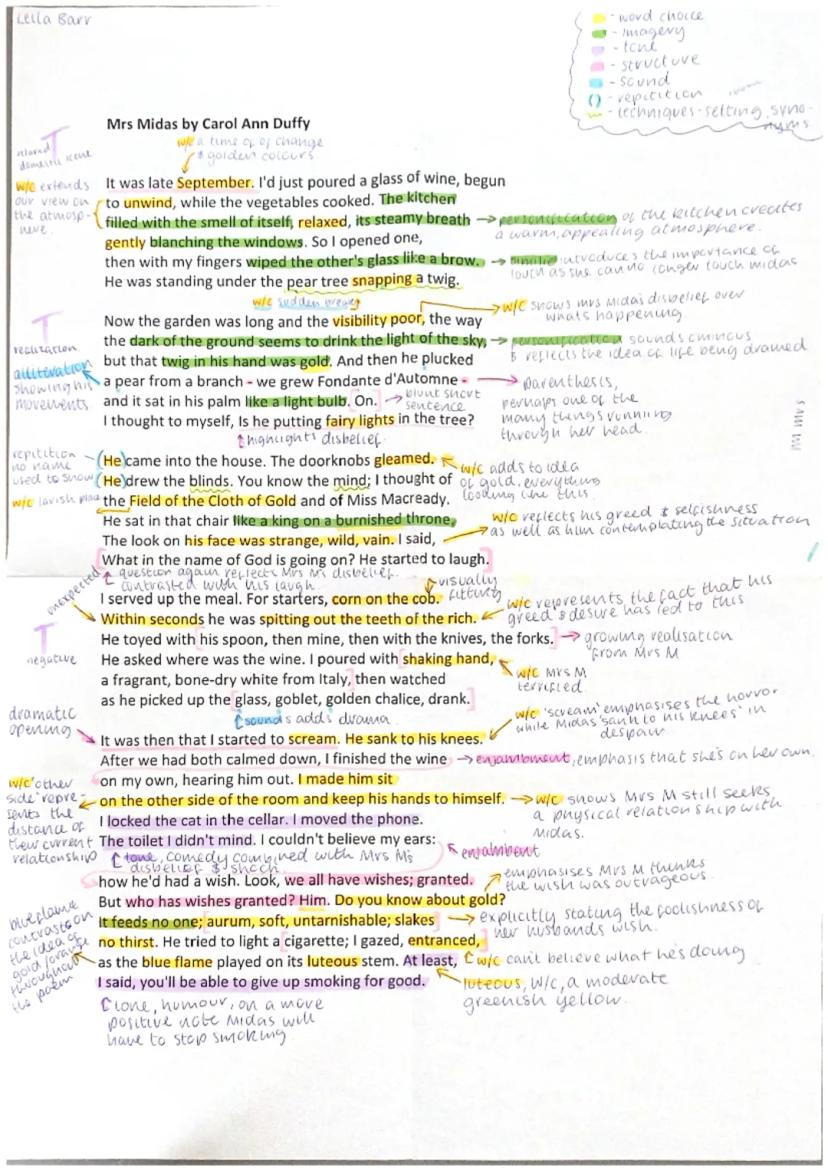 Leila Barr
- word choice
- imagery
- tone
- structure
- sound
() - repitition
- techniques - setting, syno-
nyms
Mrs Midas by Carol Ann Duffy
w/c a time of of change
& golden colours
T
relaxed
domestic scene
It was late September. I'd just poured a glass of wine, begun
w/c extends
our view on
the atmosp-
here.
to unwind, while the vegetables cooked. The kitchen
filled with the smell of itself, relaxed, its steamy breath → personification of the kitchen creates
a warm, appealing atmosphere.
gently blanching the windows. So I opened one,
then with my fingers wiped the other's glass like a brow. → simile introduces the importance of
touch as she can no longer touch midas
He was standing under the pear tree snapping a twig.
w/c sudden break
w/c shows mrs Midas disbelief over
whats happening
T
realisation
Now the garden was long and the visibility poor, the way
the dark of the ground seems to drink the light of the sky, → personification sounds ominous
& reflects the idea of life being drained
but that twig in his hand was gold. And then he plucked
alliteration
showing his
movements
a pear from a branch - we grew Fondante d'Automne -
→ parenthesis,
perhaps one of the
many things running
through her head.
and it sat in his palm like a light bulb. On. → blunt short
sentence
I thought to myself, Is he putting fairy lights in the tree?
highlights disbelief
repitition
no name
used to show
He came into the house. The doorknobs gleamed.
w/c adds to idea
of gold, everything
looking like this.
He drew the blinds. You know the mind; I thought of
w/c lavish place
the Field of the Cloth of Gold and of Miss Macready.
He sat in that chair like a king on a burnished throne,
w/c reflects his greed & selfishness
as well as him contemplating the situation
The look on his face was strange, wild, vain. I said,
What in the name of God is going on? He started to laugh.
question again reflects Mrs M's disbelief.
contrasted with his laugh.
visually
fitting
unexpected
I served up the meal. For starters, corn on the cob.
Within seconds he was spitting out the teeth of the rich.
w/c represents the fact that his
greed & desire has led to this
T
negative
He toyed with his spoon, then mine, then with the knives, the forks. → growing realisation
from Mrs M
He asked where was the wine. I poured with shaking hand,
w/c Mrs M
terrified.
a fragrant, bone-dry white from Italy, then watched
as he picked up the glass, goblet, golden chalice, drank.
sounds adds drama
dramatic
opening
w/c 'scream' emphasises the horror
while Midas 'sank to his knees' in
despair
It was then that I started to scream. He sank to his knees.
After we had both calmed down, I finished the wine → enjambment, emphasis that she's on her own.
on my own, hearing him out. I made him sit
w/c 'other
side' repre-
sents the
distance of
their current
relationship
on the other side of the room and keep his hands to himself. → w/c shows Mrs M still seeks
a physical relationship with
Midas.
I locked the cat in the cellar. I moved the phone.
The toilet I didn't mind. I couldn't believe my ears:
tone, comedy combined with Mrs M's
disbelief & shock
enjambent
how he'd had a wish. Look, we all have wishes; granted.
emphasises Mrs M thinks
the wish was outrageous.
But who has wishes granted? Him. Do you know about gold?
It feeds no one; aurum, soft, untarnishable; slakes → explicitly stating the foolishness of
her husbands wish.
blue flame
contrasts on
the idea of
gold/orange
throughout
the poem
no thirst. He tried to light a cigarette; I gazed, entranced,
w/c can't believe what he's doing
as the blue flame played on its luteous stem. At least,
I said, you'll be able to give up smoking for good.
luteous, w/c, a moderate
greenish yellow.
tone, humour, on a more
positive note Midas will
have to stop smoking